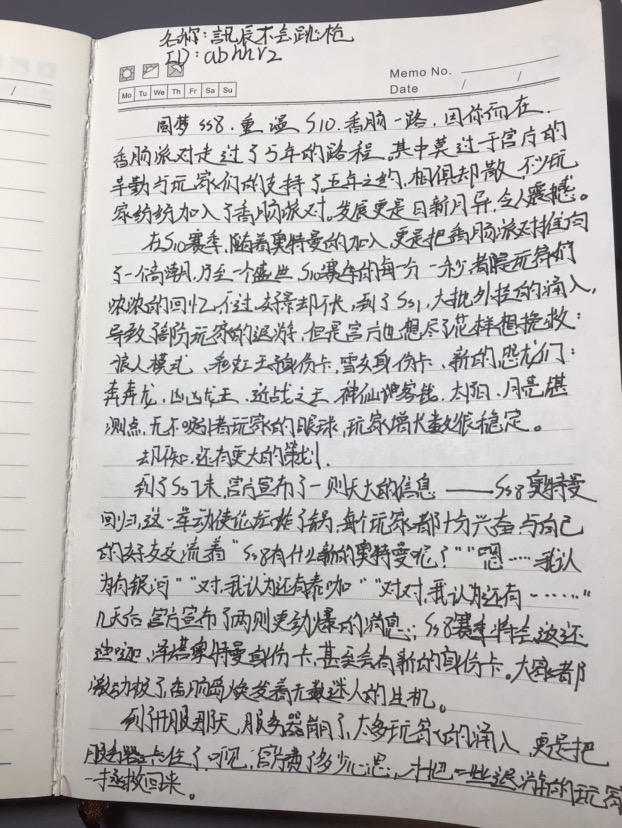 名称：訊辰不会跳枪
ID：abhhr2
Memo No.
Mo Tu We Th Fr Sa Su
Date / /
圆梦SS8.重温S10.香肠一路，因你而在.
香肠派对走过了5年的路程。其中莫过于官方的
辛勤与玩家们的支持了.五年之约，相俱却散，不少玩
家统统加入了香肠派对。发展更是日新月异，令人震撼。
在S10赛季，随着奥特曼的加入，更是把香肠派对推向
了一个高潮，乃至一个盛世，S10赛季的每一分一秒，都是玩家们
浓浓的回忆，不过，好景却不长，到了SS1，大批外挂的涌入，
导致了部防玩家的退游，但是官方也想尽了花样想挽救：
狼人模式，彩虹王子身份卡，雪女身份卡，新的恐龙们：
奔奔龙，凶凶龙王，近战之王，神仙 ，太阳，月亮
测点，无不吸引着玩家的眼球，玩家增长数很稳定。
却不知，还有更大的策划.
到了SS7末，官方宣布了一则天大的信息——SS8奥特曼
回归，这一举动使论坛炸了锅，每个玩家都十分兴奋，与自己
的好友交流着“SS8有什么新的奥特曼呢？”“嗯……我认
为有银河”“对，我认为还有泰咖”“对对，我认为还有……”
几天后，官方宣布了两则更劲爆的消息：SS8赛季将会返还
迪迦，泽塔奥特曼身份卡，甚至会有新的身份卡。大家都
激动极了，香肠岛焕发着无数迷人的生机。
到了开服那天，服务器崩了，太多玩家的涌入，更是把
服务器卡住了，可见，官方费了多少心思，才把一些退游的玩家
拯救回来。